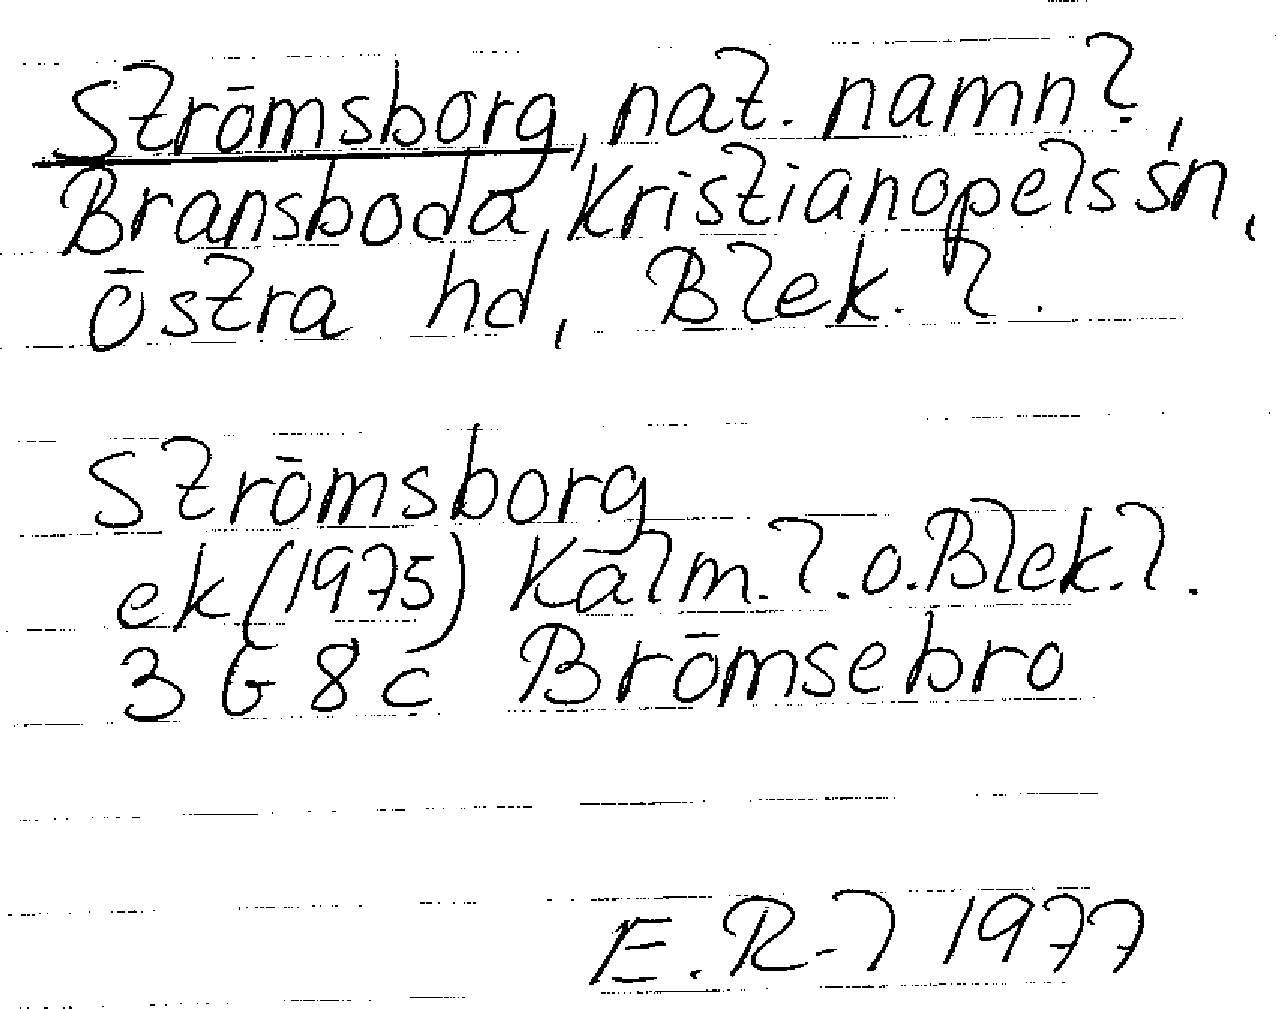 Strömsborg, nat. namn?,
Bransboda, Kristianopels sn,
Östra hd, Blek. l.
Strömsborg
ek (1975) Kalm. l. o. Blek. l.
3 G 8 c Brömsebro
1977